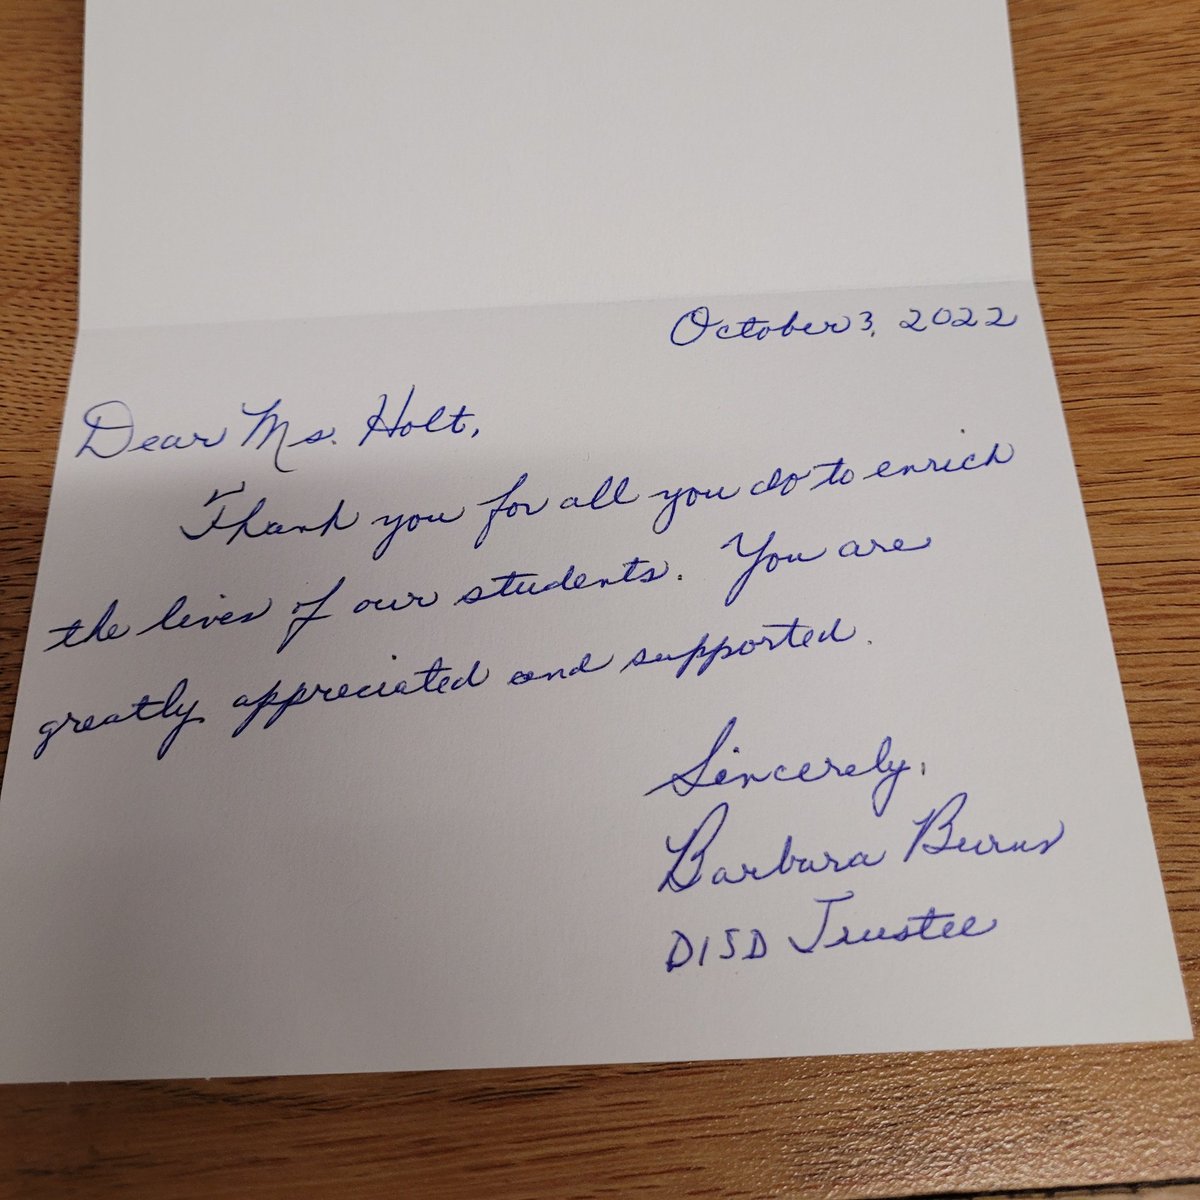 October 3, 2022
Dear Ms. Holt,
Thank you for all you do to enrich
the lives of our students. You are
greatly appreciated and supported.
Sincerely,
Barbara Burns
DISD Trustee